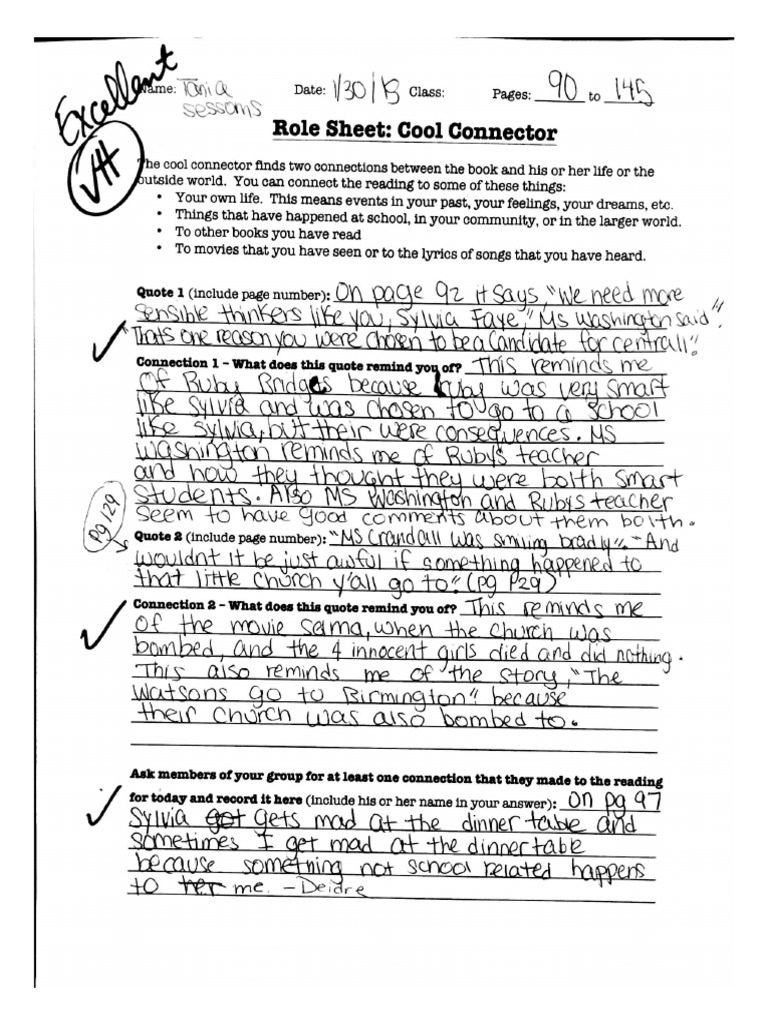 Excellent
√+
Name: Tania sessoms Date: 1/30/18 Class: Pages: 90 to 145
Role Sheet: Cool Connector
The cool connector finds two connections between the book and his or her life or the
outside world. You can connect the reading to some of these things:
• Your own life. This means events in your past, your feelings, your dreams, etc.
• Things that have happened at school, in your community, or in the larger world.
• To other books you have read
• To movies that you have seen or to the lyrics of songs that you have heard.
Quote 1 (include page number): On page 92 it says, "We need more
sensible thinkers like you, Sylvia Faye," Ms Washington said".
"Thats one reason you were chosen to be a Candidate for centrall".
Connection 1 – What does this quote remind you of? This reminds me
Of Ruby Bridges because Ruby was very smart
like Sylvia and was chosen to go to a school
like Sylvia, but their were consequences. MS
Washington reminds me of Rubys teacher
and how they thought they were bolth smart
Students. Also MS Washington and Rubys teacher
seem to have good comments about them bolth.
pg 129
Quote 2 (include page number): "MS Crandall was smiling bradly". "And
wouldnt it be just awful if something happened to
that little church y'all go to". (pg 129)
Connection 2 – What does this quote remind you of? This reminds me
of the movie Selma, when the church was
bombed, and the 4 innocent girls died and did nothing.
This also reminds me of the story, "The
Watsons go to Birmington" because
their church was also bombed to.
Ask members of your group for at least one connection that they made to the reading
for today and record it here (include his or her name in your answer): On pg 97
Sylvia got gets mad at the dinner table and
sometimes I get mad at the dinner table
because something not school related happens
to her me. – Deidre